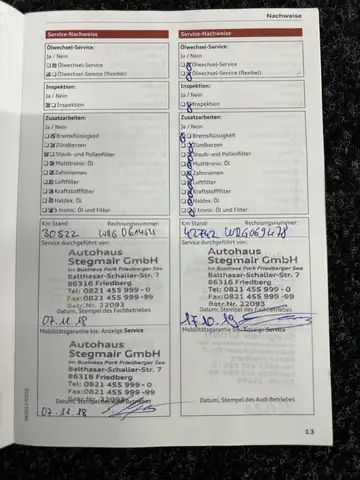 Nachweise
Service-Nachweise
Ölwechsel-Service:
Ja / Nein
Ölwechsel-Service
Ölwechsel-Service (flexibel)
Inspektion:
Ja / Nein
Inspektion
Zusatzarbeiten:
Ja / Nein
Bremsflüssigkeit
Zündkerzen
Staub- und Pollenfilter
Multitronic: Öl
Zahnriemen
Luftfilter
Kraftstofffilter
Haldex: Öl
S tronic: Öl und Filter
Km Stand: Rechnungsnummer:
30522
Service durchgeführt von:
Autohaus
Stegmair GmbH
Im Business Park Friedberger See
Balthasar-Schaller-Str. 7
86316 Friedberg
Tel: 0821 455 999 - 0
Fax: 0821 455 999 -99
Betr.Nr. 22093
Datum, Stempel des Fachbetriebes
07.11.18
Mobilitätsgarantie bis: Anzeige Service
Autohaus
Stegmair GmbH
Im Business Park Friedberger See
Balthasar-Schaller-Str. 7
86316 Friedberg
Tel: 0821 455 999 - 0
Fax: 0821 455 999 -99
Betr.Nr. 22093
Datum, Stempel des Audi Betriebes
07.11.18
Service-Nachweise
Ölwechsel-Service:
Ja / Nein
Ölwechsel-Service
Ölwechsel-Service (flexibel)
Inspektion:
Ja / Nein
Inspektion
Zusatzarbeiten:
Ja / Nein
Bremsflüssigkeit
Zündkerzen
Staub- und Pollenfilter
Multitronic: Öl
Zahnriemen
Luftfilter
Kraftstofffilter
Haldex: Öl
S tronic: Öl und Filter
Km Stand: Rechnungsnummer:
42742 WRG069478
Service durchgeführt von:
Autohaus
Stegmair GmbH
Im Business Park Friedberger See
Balthasar-Schaller-Str. 7
86316 Friedberg
Tel: 0821 455 999 - 0
Fax: 0821 455 999 -99
Betr.Nr. 22093
Datum, Stempel des Fachbetriebes
17.10.19
Mobilitätsgarantie bis: Anzeige Service
Datum, Stempel des Audi Betriebes
13